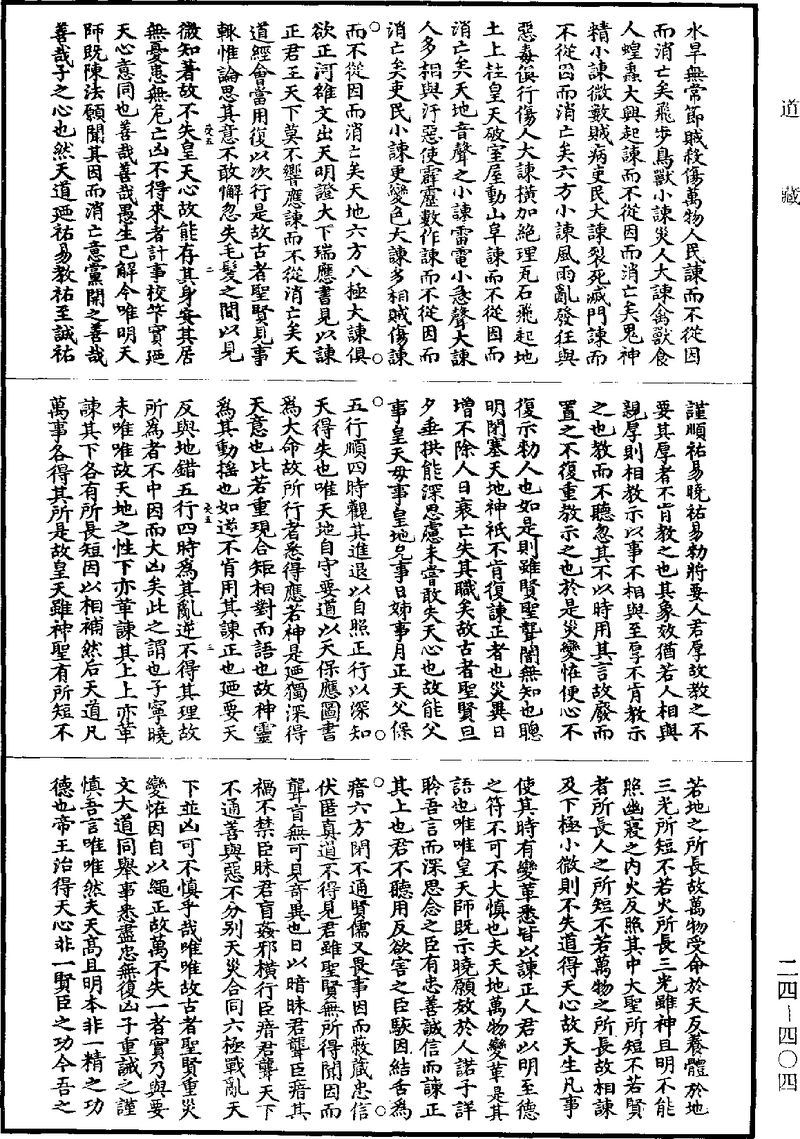 道藏
二四—四〇四
水旱無常節賊殺傷萬物人民諫而不從因
而消亡矣飛步鳥獸小諫災人大諫禽獸食
人蝗蟲大興起諫而不從因而消亡矣鬼神
精小諫微數賊病吏民大諫裂死滅門諫而
不從因而消亡矣六方小諫風雨亂發狂與
惡毒俱行傷人大諫橫加絕理瓦石飛起地
土上柱皇天破室屋動山阜諫而不從因而
消亡矣天地音聲之小諫雷電小急聲大諫
人多相與汙惡使霹靂數作諫而不從因而
消亡矣吏民小諫更變色大諫多相賊傷諫
而不從因而消亡矣天地六方八極大諫俱
欲正河雒文出天明證大下瑞應書見以諫
正君王天下莫不響應諫而不從消亡矣天
道經會當用復以次行是故古者聖賢見事
輒惟論思其意不敢懈忽失毛髮之間以見
微知著故不失皇天心故能存其身安其居
無憂患無危亡凶不得來者計事校筭實廼
天心意同也善哉善哉愚生已解今唯明天
師既陳法願聞其因而消亡意黨開之善哉
善哉子之心也然天道廼祐易教祐至誠祐
謹順祐易曉祐易勑將要人君厚故教之不
要其厚者不肯教之也其象效猶若人相與
親厚則相教示以事不相與至厚不肯教示
之也教而不聽忽其不以時用其言故廢而
置之不復重教示之也於是災變恠便心不
復示勑人也如是則雖賢聖聾闇無知也聰
明閉塞天地神祇不肯復諫正者也災異日
增不除人日衰亡失其職矣故古者聖賢旦
夕垂拱能深思慮未嘗敢失天心也故能父
事皇天母事皇地兄事日姊事月正天父保
五行順四時觀其進退以自照正行以深知
天得失也唯天地自守要道以天保應圖書
為大命故所行者悉得應若神是廼獨深得
天意也比若重現合矩相對而語也故神靈
為其動搖也如逆不肯用其諫正也廼要天
反與地錯五行四時為其亂逆不得其理故
所為者不中因而大凶矣此之謂也子寧曉
未唯唯故天地之性下亦革諫其上上亦革
諫其下各有所長短因以相補然后天道凡
萬事各得其所是故皇天雖神聖有所短不
若地之所長故萬物受命於天反養體於地
三光所短不若火所長三光雖神且明不能
照幽寢之內火反照其中大聖所短不若賢
者所長人之所短不若萬物之所長故相諫
及下極小微則不失道得天心故天生凡事
使其時有變革悉皆以諫正人君以明至德
之符不可不大慎也夫天地萬物變革是其
語也唯唯皇天師既示曉願效於人諾子詳
聆吾言而深思念之臣有忠善誠信而諫正
其上也君不聽用反欲害之臣駭因結舌為
瘖六方閉不通賢儒又畏事因而蔽藏忠信
伏匿真道不得見君雖聖賢無所得聞因而
聾盲無可見奇異也日以暗昧君聾臣瘖其
禍不禁臣昧君盲姦邪橫行臣瘖君聾天下
不通善與惡不分別天災合同六極戰亂天
下並凶可不慎乎哉唯唯故古者聖賢重災
變恠因自以繩正故萬不失一者實乃與要
文大道同舉事悉盡忠無復凶子重誡之謹
慎吾言唯唯然夫天高且明本非一精之功
德也帝王治得天心非一賢臣之功今吾之